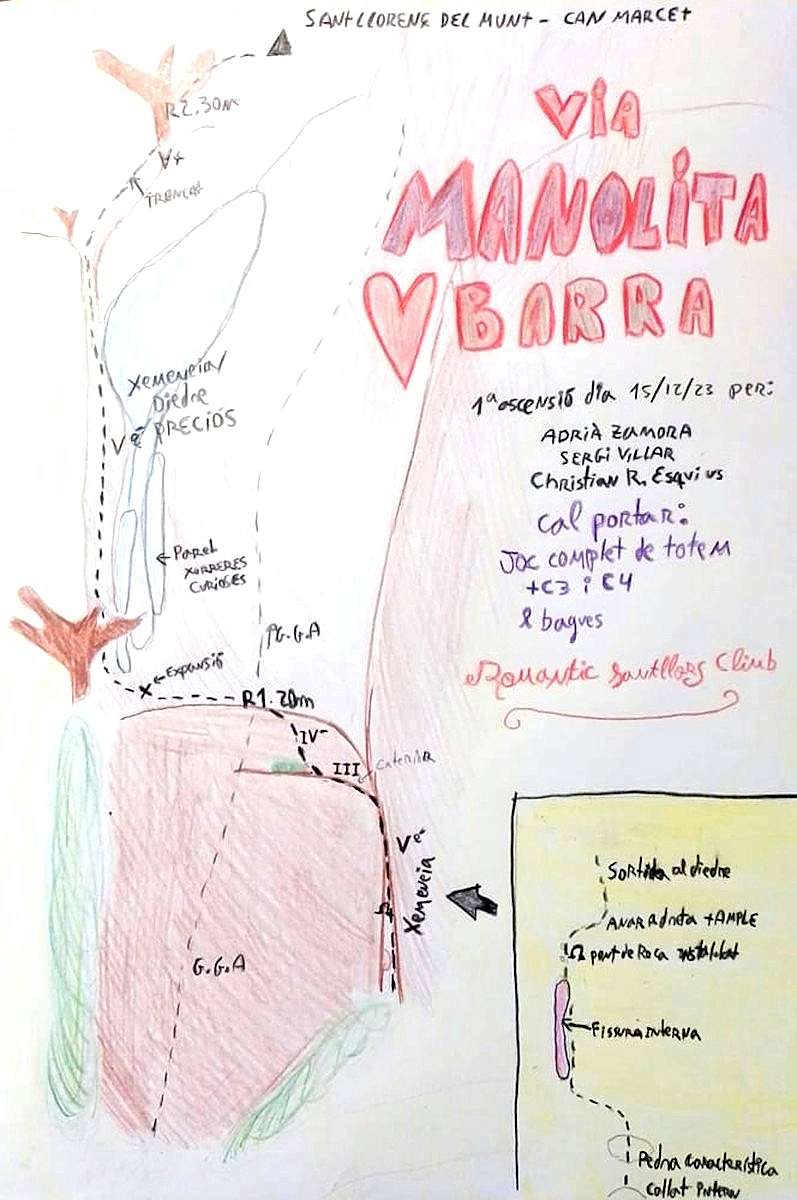 SANT LLORENÇ DEL MUNT - CAN MARCET
VIA
MANOLITA
BARRA
1ª ascensió dia 15/12/23 per:
ADRIÀ ZAMORA
SERGI VILLAR
Christian R. Esquius
Cal portar:
JOC complet de totem
+C3 i C4
8 bagues
Romantic Santllors Climb
R2.30m
V+
TRENCAT
Xemeneia/
Diedre
PRECIÓS
Vè
Paret
XORRERES
CURIOSES
G.G.A
Expansió
R1.20m
IV-
III
Vè
Xemeneia
G.G.A
Sortida al diedre
ANAR a dreta + AMPLE
Ω pont de Roca instal·lat
FISSURA INTERNA
Pedra característica
collat